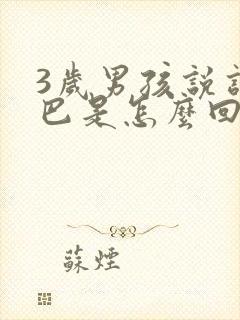 3歲男孩說
巴是怎麼回
蘇煙